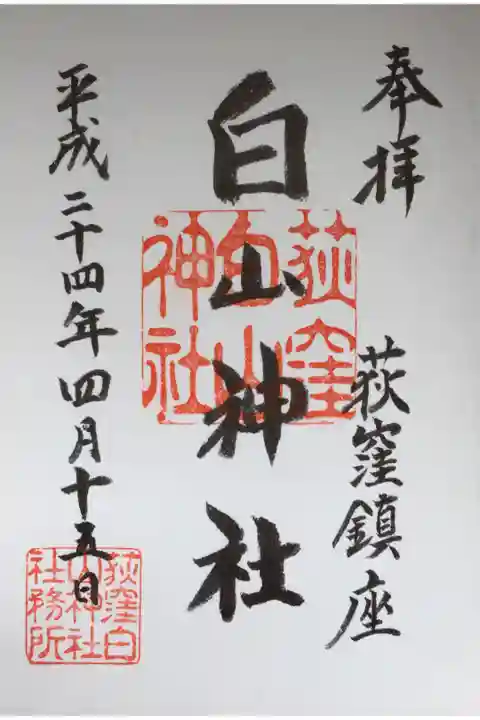 奉拝
荻窪鎮座
白山神社
荻窪
白山
神社
平成二十四年四月十五日
荻窪白
山神社
社務所